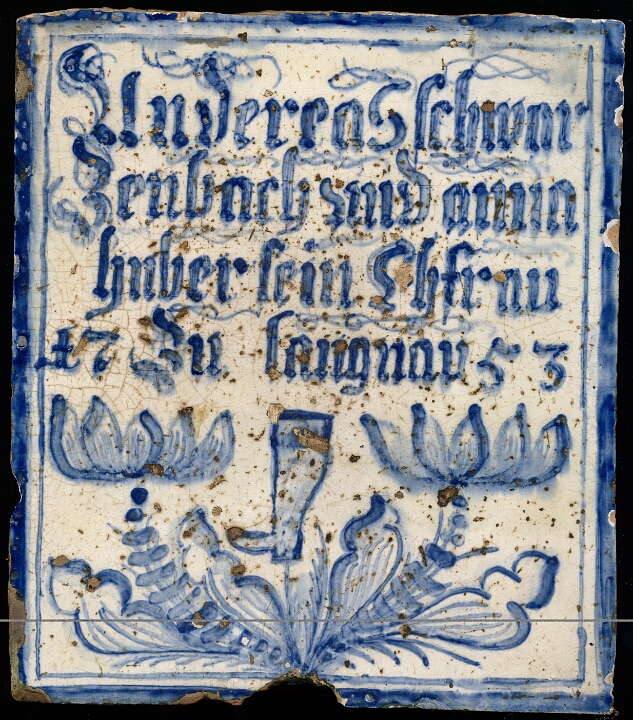 Andereas schwar
Zenbach und anna
huber sein Ehfrau
17 Zu langnau 53